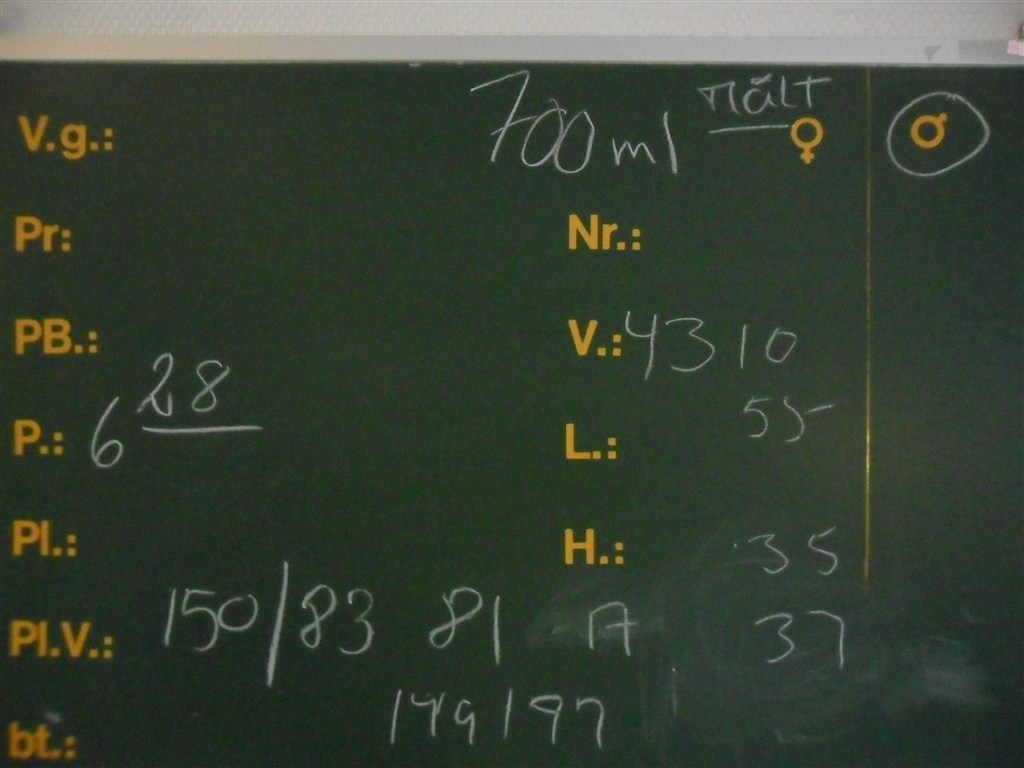 V.g.: 700 ml mält ♀ ♂
Pr: Nr.:
PB.: V.: 4310
P.: 6 28 L.: 55
Pl.: H.: 35
Pl.V.: 150/83 81 A 37
bt.: 149/97